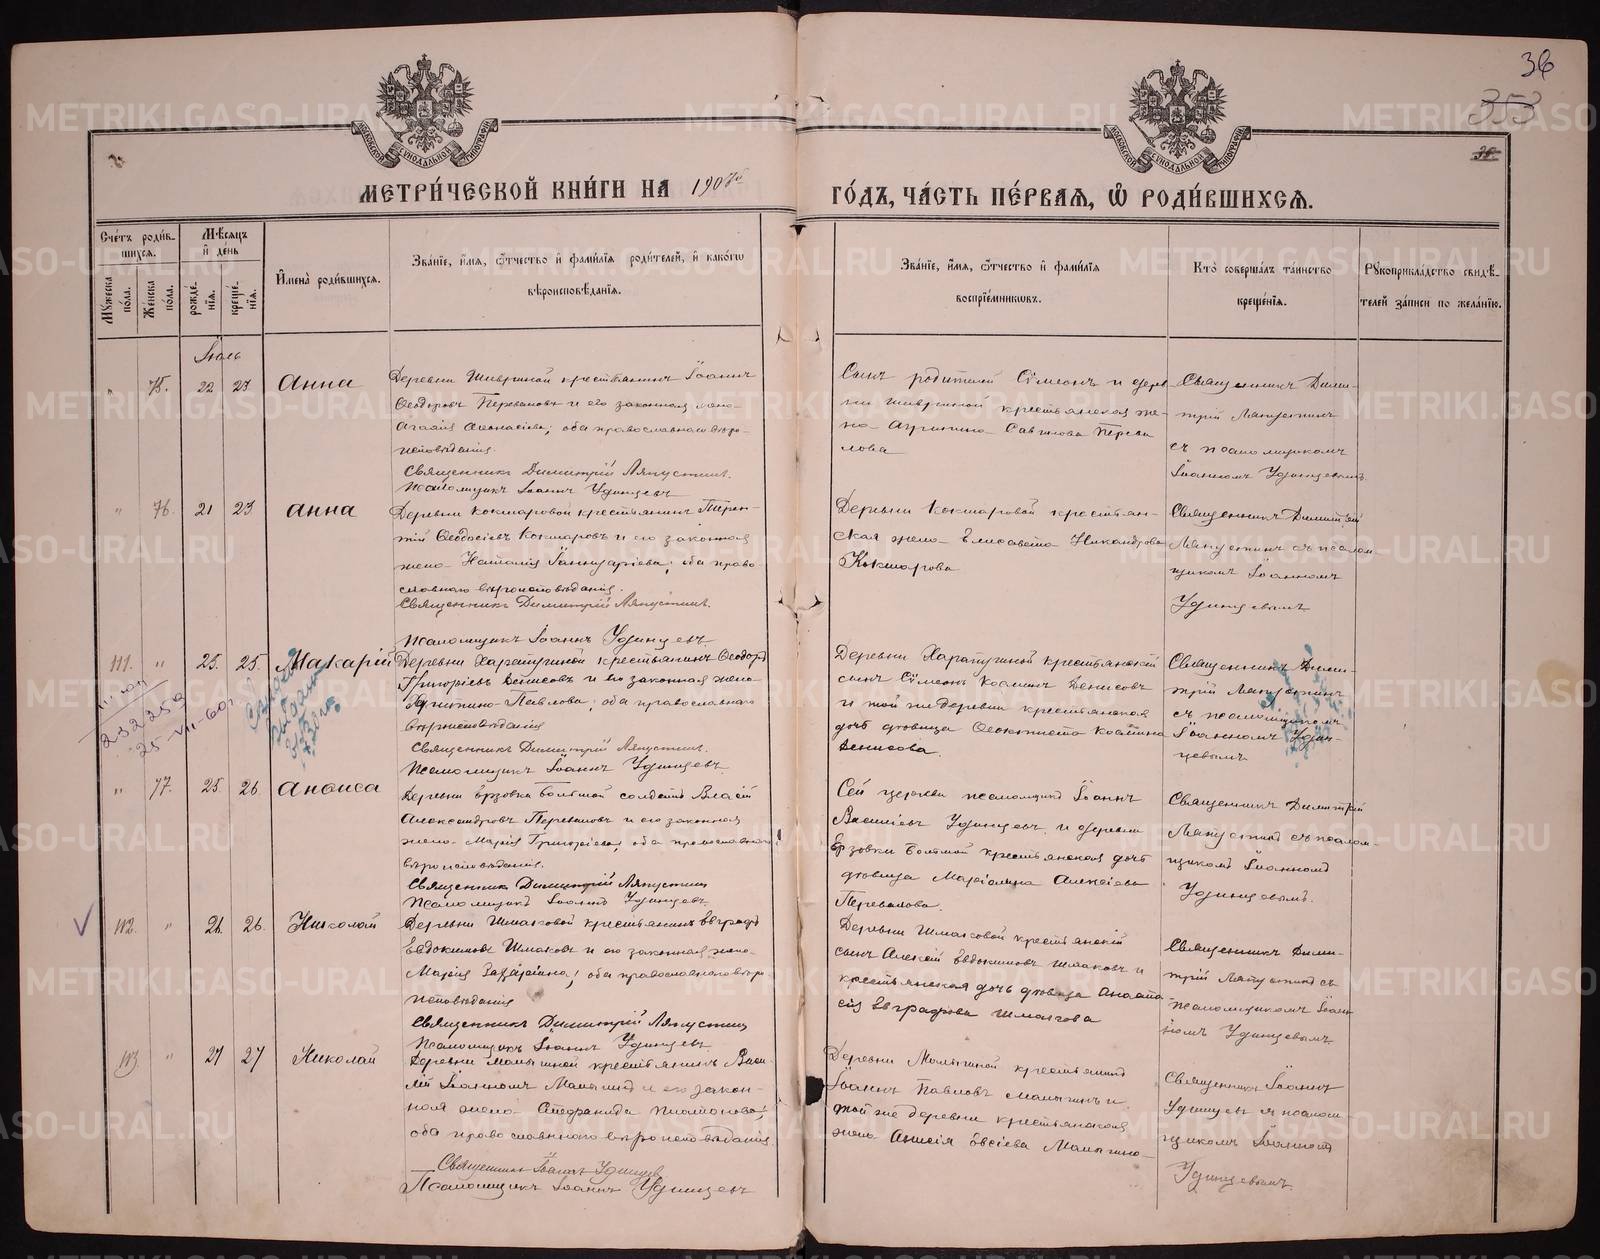 36
353
МЕТРИ́ЧЕСКОЙ КНИ́ГИ НА 1907й ГО́ДЪ, ЧА́СТЬ ПЕ́РВАЯ, Ѡ҆ РОДИ́ВШИХСЯ.
Сче́тъ роди́в-
шихся.
Мꙋ́жеска по́ла.
Же́нска по́ла.
Мѣ́сяцъ и҆ де́нь
рожде́нїя.
креще́нїя.
И҆мена̀ роди́вшихся.
Зва́нїе, и҆́мя, ѻ҆́тчество и҆ фами́лїя роди́телей, и҆ како́гѡ
вѣроисповѣ́данїя.
Зва́нїе, и҆́мя, ѻ҆́тчество и҆ фами́лїя
воспрїе́мниковъ.
Кто̀ соверша́лъ та́инство
креще́нїя.
Рꙋкоприкла́дство свидѣ́-
телей за́писи по жела́нїю.
Июль
" 75. 22 27 Анна
Деревни крестьянинъ Іоаннъ
Ѳеодоровъ Переваловъ и его законная жена
Агаѳія Аѳанасіева; оба православнаго вѣро-
исповѣданія.
Священникъ Димитрій Ляпустинъ.
Псаломщикъ Іоаннъ Удинцевъ
Сынъ родителей Сѵмеонъ и дерев-
ни крестьянская же-
на Савинова Перева
лова
Священникъ Дими-
трій Ляпустинъ
съ псаломщикомъ
Іоанномъ Удинцевымъ.
" 76. 21 23 Анна
Деревни Кокшаровой крестьянинъ Терен-
тій Ѳеодосіевъ Кокшаровъ и его законная
жена Наталія Іаннуаріева; оба право-
славнаго вѣроисповѣданія.
Священникъ Димитрій Ляпустинъ.
Псаломщикъ Іоаннъ Удинцевъ
Деревни Кокшаровой крестьян-
ская жена Елисавета Никандрова
Кокшарова
Священникъ Димитрій
Ляпустинъ съ псалом-
щикомъ Іоанномъ
Удинцевымъ
111. " 25. 25. Макарій
Деревни Харапугиной крестьянинъ Ѳеодоръ
Григоріевъ Денисовъ и его законная жена
Павлова; оба православнаго
вѣроисповѣданія
Священникъ Димитрій Ляпустинъ.
Псаломщикъ Іоаннъ Удинцевъ
Деревни Харапугиной крестьянскій
сынъ Сѵмеонъ Косминъ Денисовъ
и той же деревни крестьянская
дочь дѣвица Ѳеоктиста Космина
Денисова.
Священникъ Дими-
трій Ляпустинъ
съ псаломщикомъ
Іоанномъ Удин-
цевымъ
" 77. 25. 26 Анѳиса
Деревни Ерзовки Большой солдатъ Власій
Александровъ Переваловъ и его законная
жена Марія Григоріева, оба православнаго
вѣроисповѣданія.
Священникъ Димитрій Ляпустинъ
Псаломщикъ Іоаннъ Удинцевъ.
Сей церкви псаломщикъ Іоаннъ
Василіевъ Удинцевъ и деревни
Ерзовки Большой крестьянская дочь
дѣвица Маріамна Алексіева
Перевалова.
Священникъ Димитрій
Ляпустинъ съ псалом-
щикомъ Іоанномъ
Удинцевымъ.
112. " 26. 26. Николай
Деревни Шмаковой крестьянинъ Евграфъ
Евдокимовъ Шмаковъ и его законная жена
Марія оба православнаго вѣро
исповѣданія
Священникъ Димитрій Ляпустинъ
Псаломщикъ Іоаннъ Удинцевъ.
Деревни Шмаковой крестьянскій
сынъ Алексій Евдокимовъ Шмаковъ и
крестьянская дочь дѣвица Анаста
сія Евграфова Шмакова
Священникъ Дими-
трій Ляпустинъ съ
псаломщикомъ Іоан
номъ Удинцевымъ
113. " 27 27 Николай
Деревни Мамыгиной крестьянинъ Васи-
лій Іоанновъ Мамыгинъ и его закон-
ная жена Стефанида Платонова;
оба православнаго вѣроисповѣданія.
Священникъ Іоаннъ Удинцевъ
Псаломщикъ Іоаннъ Удинцевъ
Деревни Мамыгиной крестьянинъ
Іоаннъ Павловъ Мамыгинъ и
той же деревни крестьянская
жена Анисія Евсіева Мамыгина
Священникъ Іоаннъ
Удинцевъ и псалом
щикомъ Іоанномъ
Удинцевымъ.